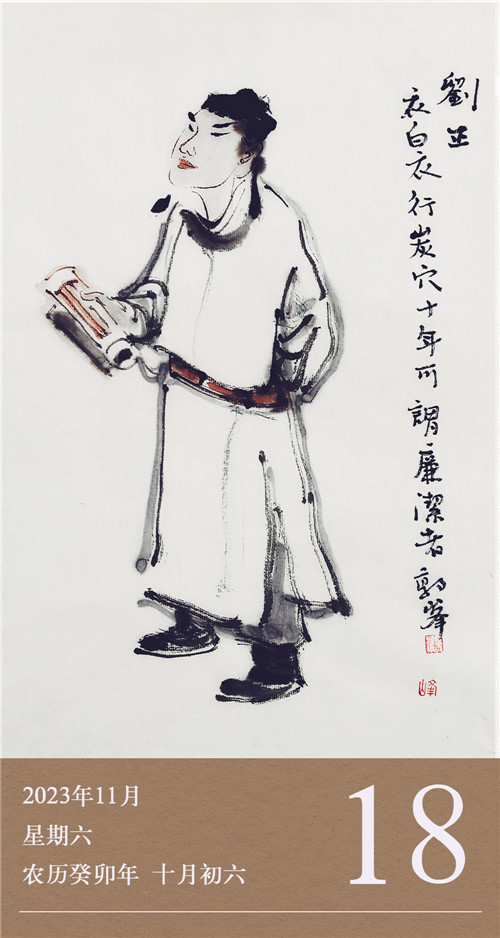 劉正
衣白衣行炭穴十年可謂廉潔者 郭峰
峰
2023年11月
星期六
农历癸卯年 十月初六
18